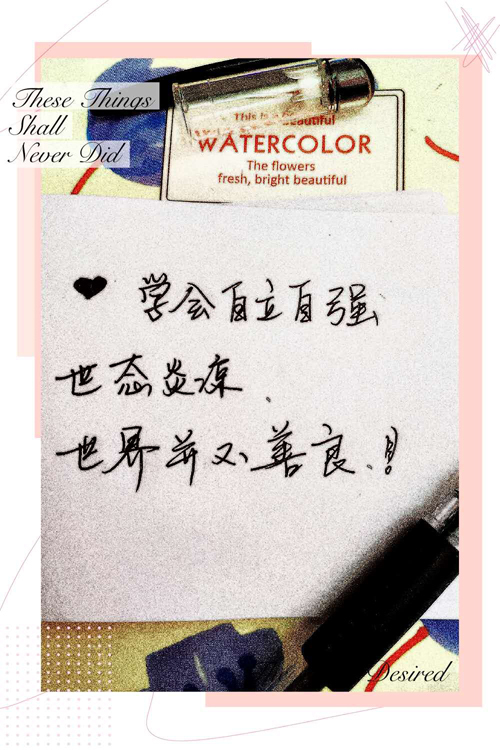 These Things
Shall
Never Did
WATERCOLOR
The flowers
fresh, bright beautiful
学会自立自强
世态炎凉.
世界并不善良.!
Desired